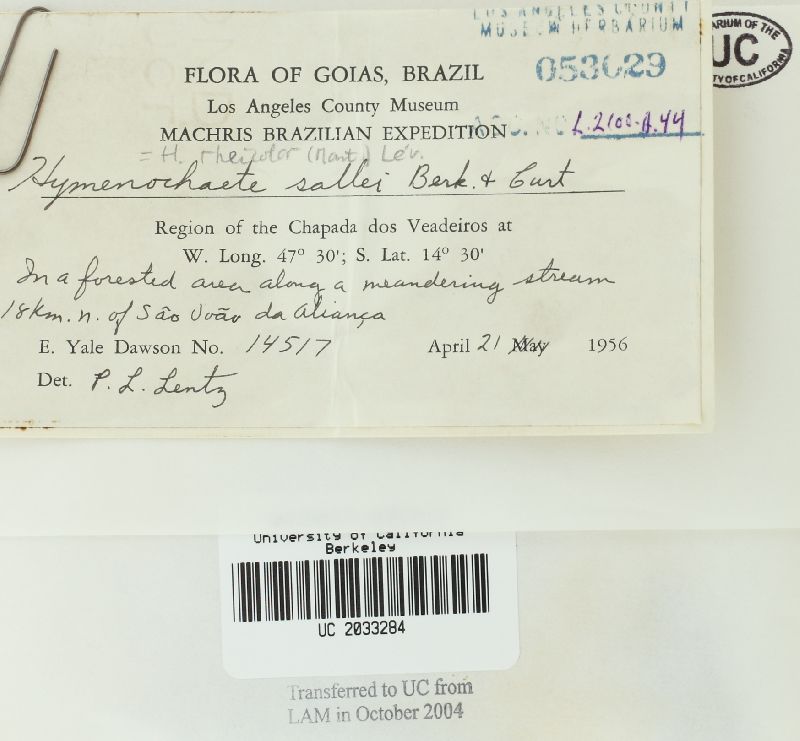 LOS ANGELES COUNTY
MUSEUM HERBARIUM
053029
ARIUM OF THE
UC
TY OF CALIFORNIA
FLORA OF GOIAS, BRAZIL
Los Angeles County Museum
MACHRIS BRAZILIAN EXPEDITION
ACC. NO. L.2100-A.44
= H. (Mont.) Lév.
Hymenochaete sallei Berk. & Curt
Region of the Chapada dos Veadeiros at
W. Long. 47° 30'; S. Lat. 14° 30'
In a forested area along a meandering stream
18 km. n. of São João da Aliança
E. Yale Dawson No. 14517 April 21 May 1956
Det. P. L. Lentz
University of California
Berkeley
UC 2033284
Transferred to UC from
LAM in October 2004